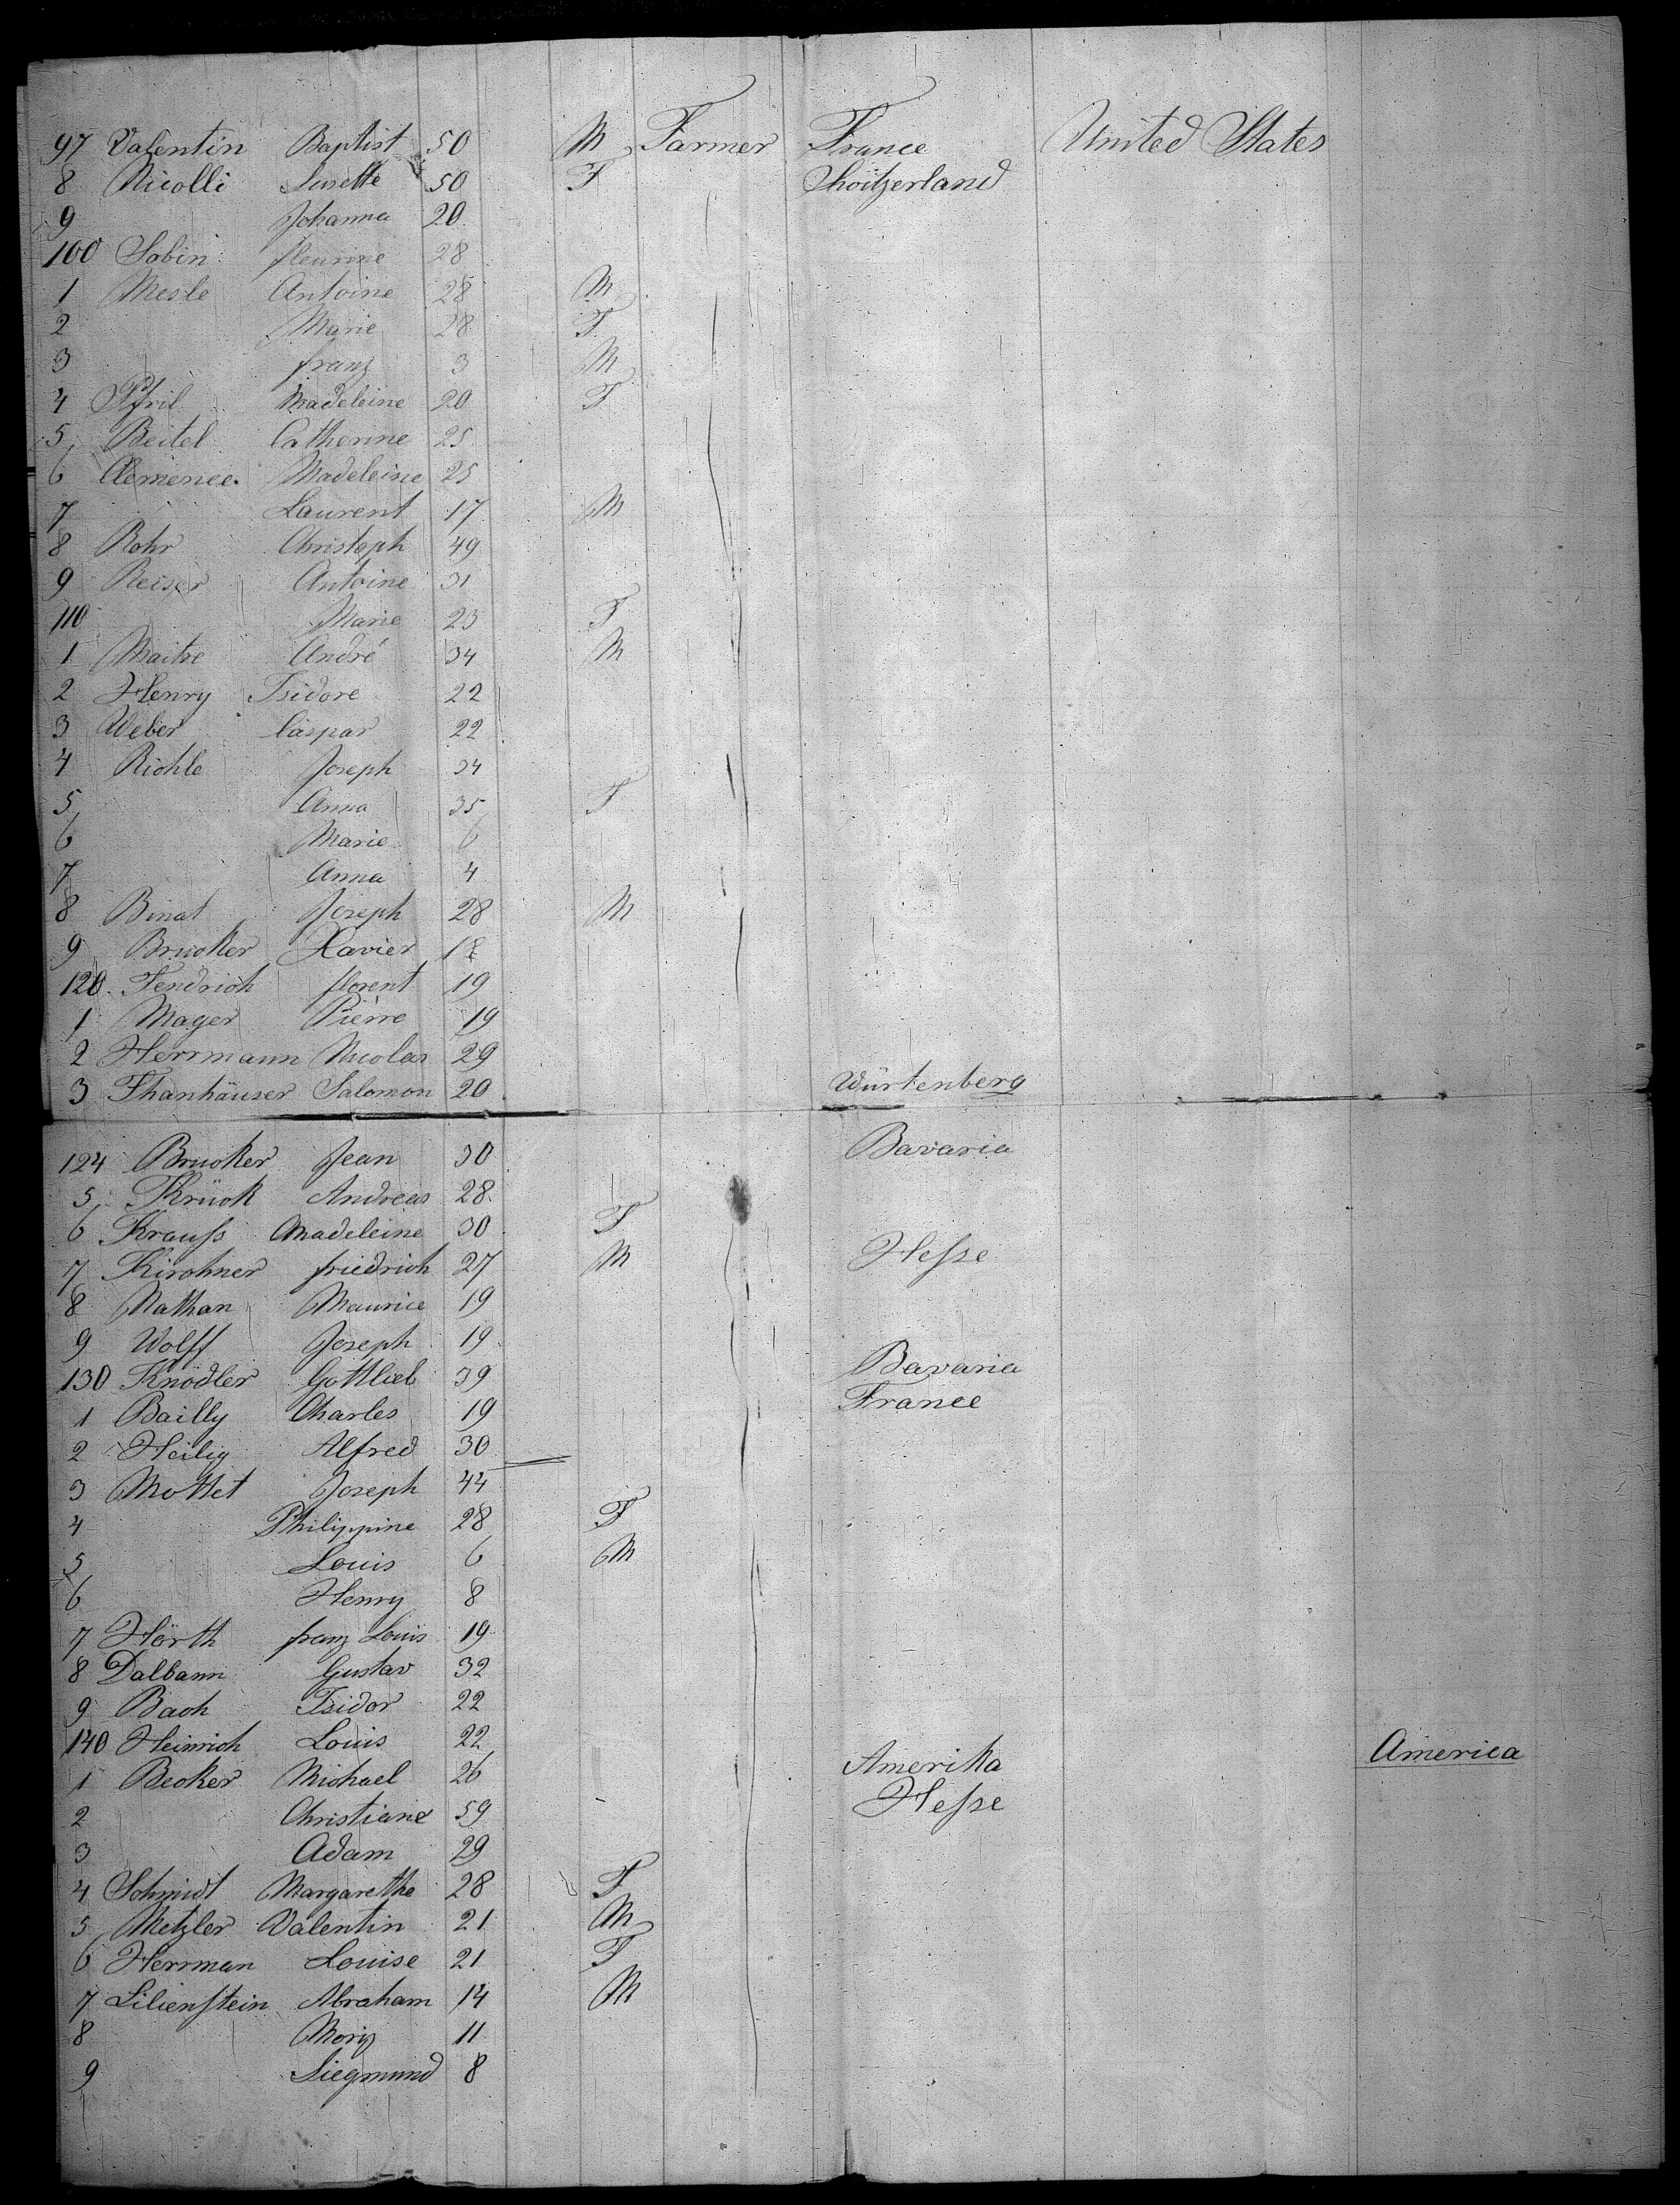 97 Valentin Baptist 50 M Farmer France United States
8 Nicolli Susette 50 F Switzerland
9 Johanna 20
100 Sobin fleurine 28
1 Mesle Antoine 28 M
2 Marie 28 F
3 franz 3 M
4 Pfril Madeleine 20 F
5 Beitel Catherine 25
6 Clemence Madeleine 25
7 Laurent 17 M
8 Rohr Christoph 49
9 Reiser Antoine 31
110 Marie 23 F
1 Maitre André 34 M
2 Henry Isidore 22
3 Weber Caspar 22
4 Richle Joseph 34
5 Anna 35 F
6 Marie 6
7 Anna 4
8 Binat Joseph 28 M
9 Brucker Xavier 18
120 Fendrich florent 19
1 Mager Pierre 19
2 Herrmann Nicolas 29
3 Thanhäuser Salomon 20 Würtenberg
124 Brucker Jean 30 Bavaria
5 Krück Andreas 28
6 Krauſs Madeleine 30 F
7 Kirchner friedrich 27 M Heſse
8 Nathan Maurice 19
9 Wolff Joseph 19 Bavaria
130 Knödler Gottlieb 39 France
1 Bailly Charles 19
2 Heilig Alfred 30
3 Mottet Joseph 44
4 Philippine 28 F
5 Louis 6 M
6 Henry 8
7 Hörth franz Louis 19
8 Dalbann Gustav 32
9 Bach Isidor 22
140 Heinrich Louis 22 Amerika America
1 Becker Michael 26 Heſse
2 Christiane 59
3 Adam 29
4 Schmidt Margarethe 28 F
5 Metzler Valentin 21 M
6 Herrman Louise 21 F
7 Lilienſtein Abraham 14 M
8 Moriz 11
9 Siegmund 8